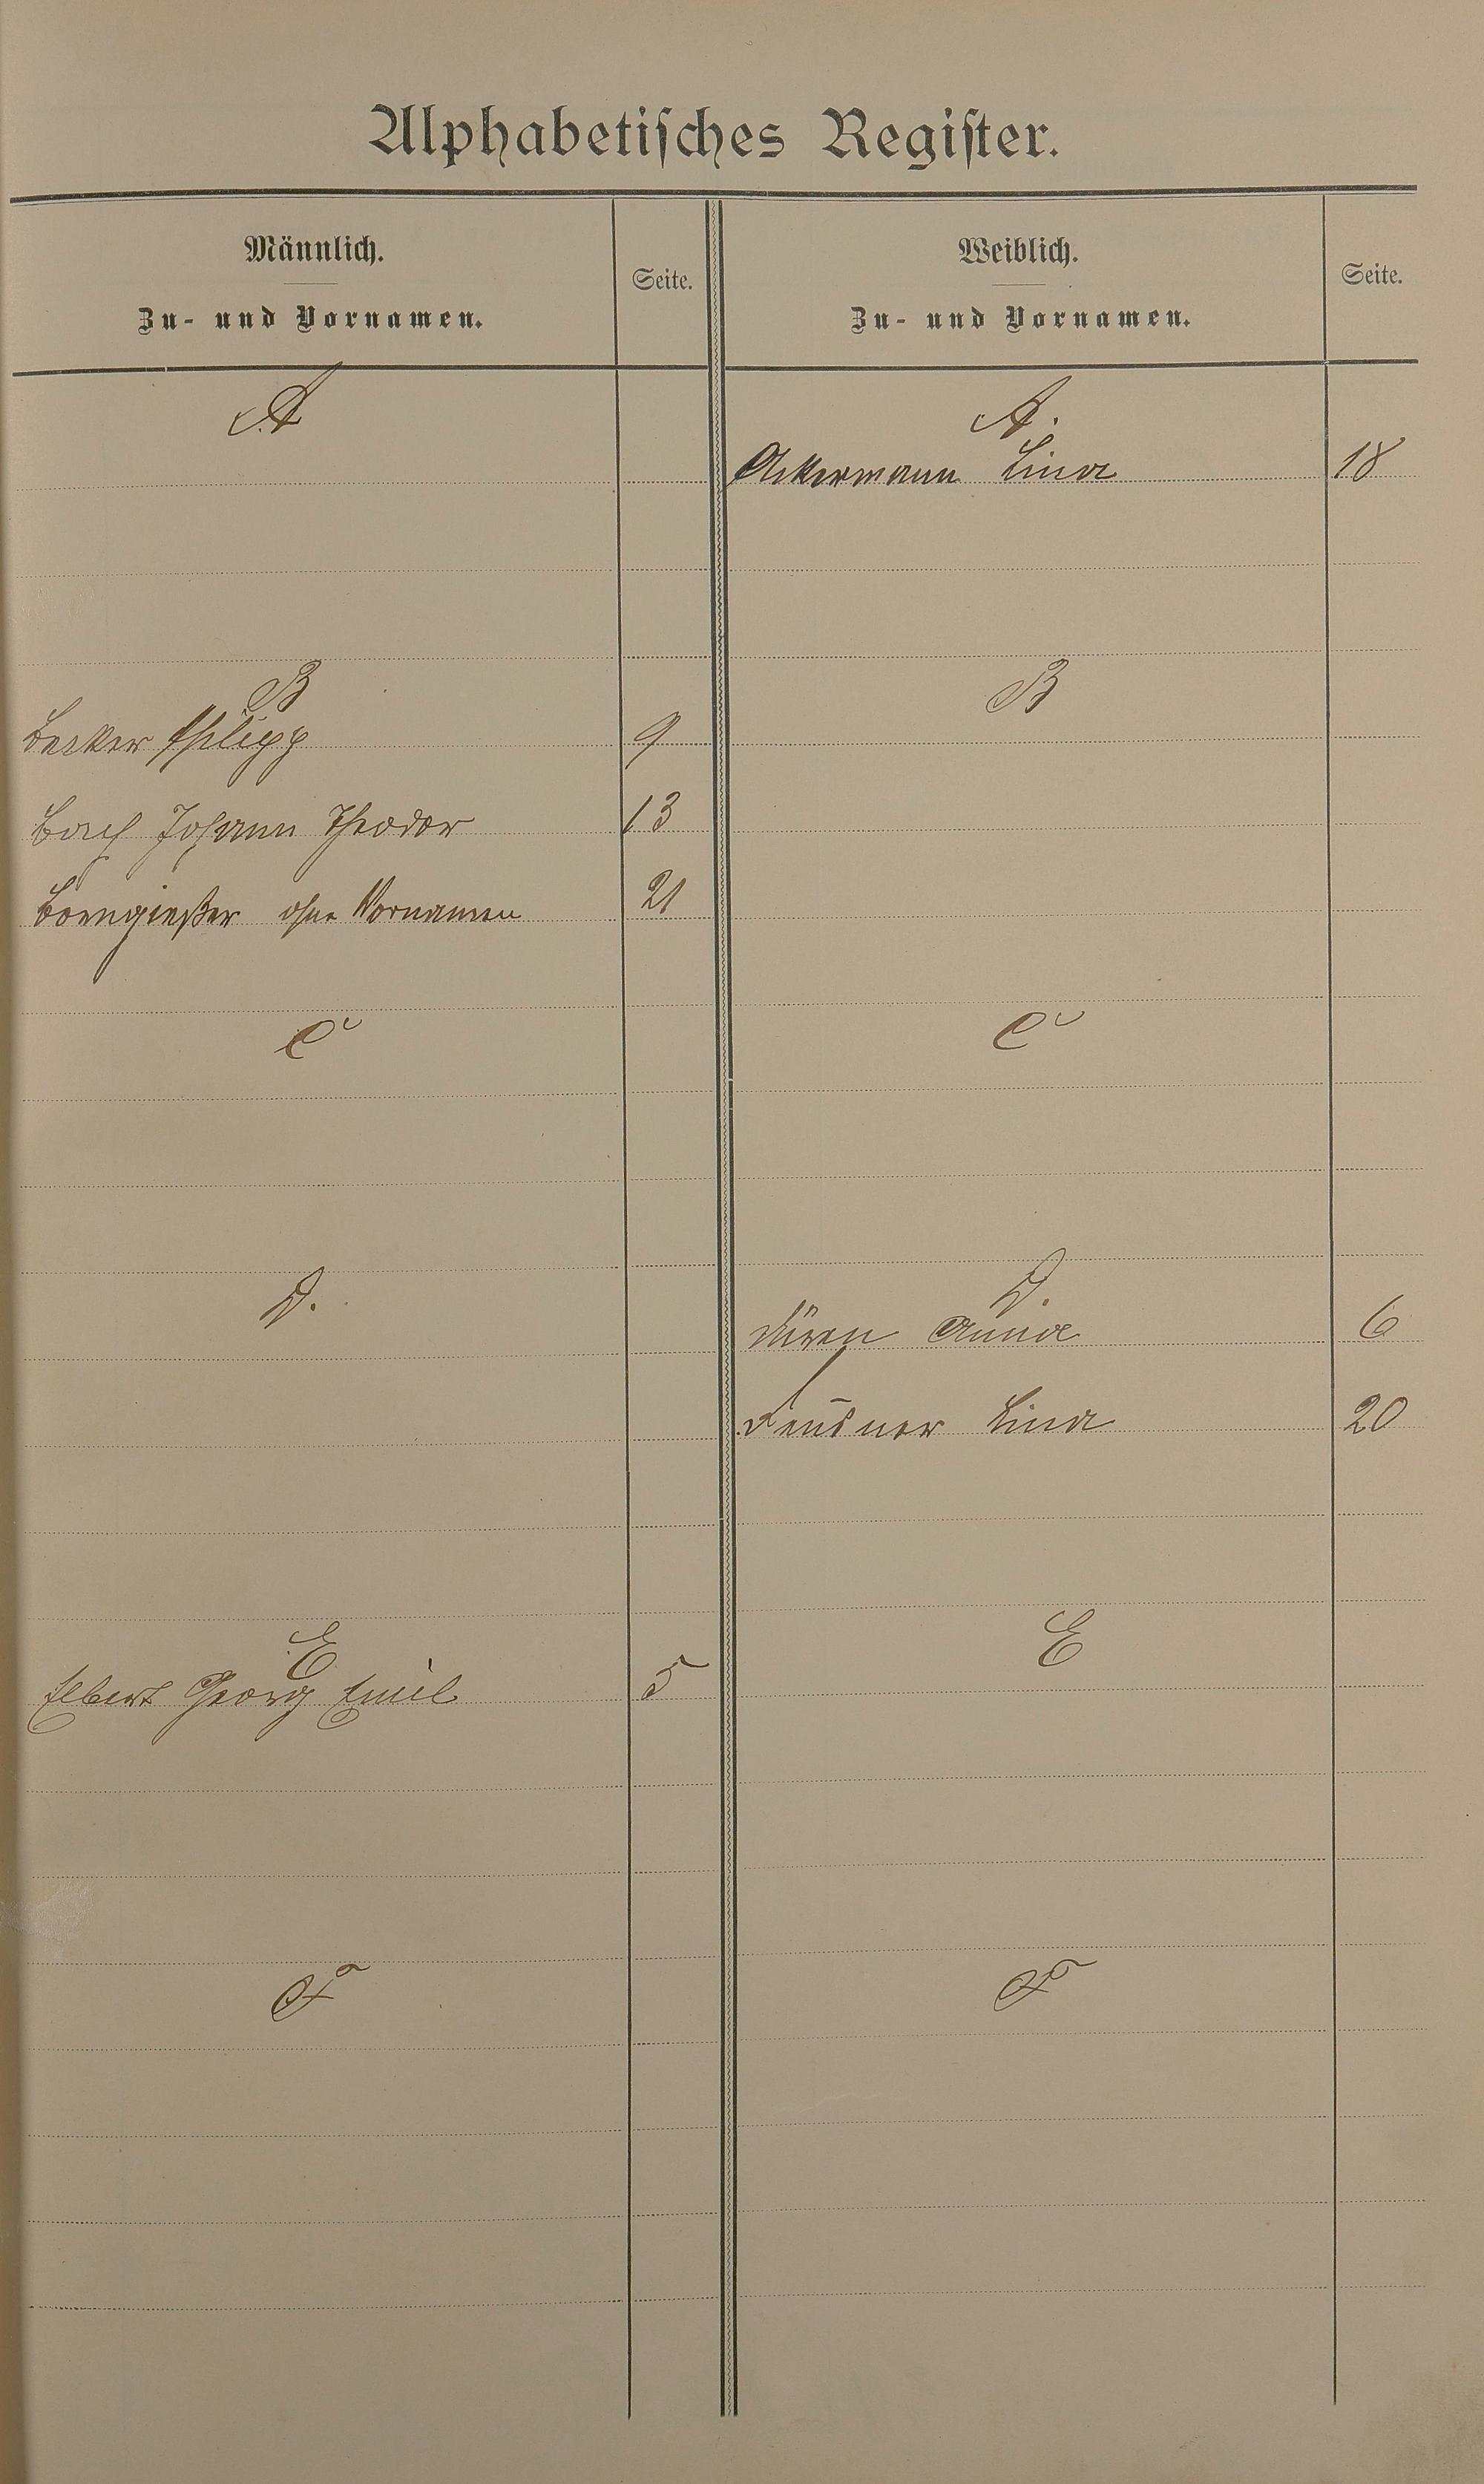 Alphabetisches Register.
Männlich.
Zu- und Vornamen.
Seite.
Weiblich.
Zu- und Vornamen.
Seite.
A
A.
Ackermann Lina 18
B
B
Becker Philipp 9
Bach Johann Theodor 13
Borngießer ohne Vornamen 21
C
C
D.
D.
Düren Anna 6
Deusner Lina 20
E
E
Elbert Georg Emil 5
F
F